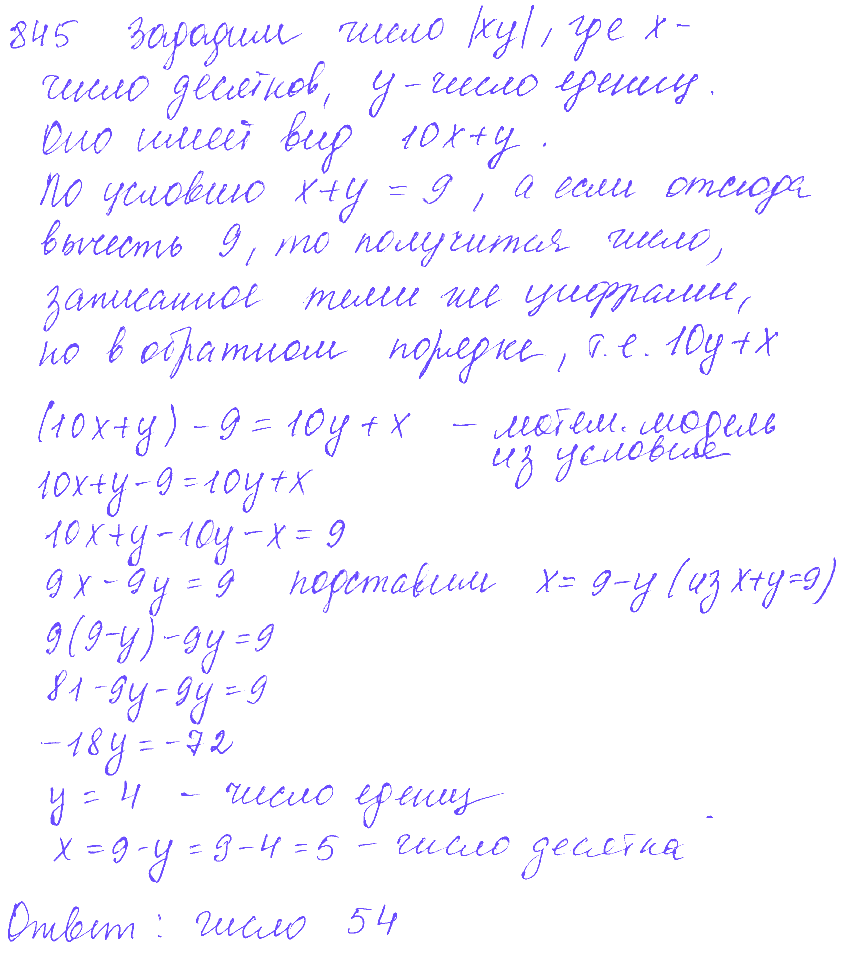 845 Зададим число |xy|, где x -
число десятков, y - число едениц.
Оно имеет вид 10x+y.
По условию x+y = 9, а если отсюда
вычесть 9, то получится число,
записанное теми же цифрами,
но в обратном порядке, т.е. 10y+x
(10x+y) - 9 = 10y + x - матем. модель
из условия
10x+y-9=10y+x
10x+y-10y-x = 9
9x-9y = 9 подставим x = 9-y (из x+y=9)
9(9-y)-9y=9
81-9y-9y=9
-18y=-72
y = 4 - число едениц
x = 9-y = 9-4 = 5 - число десятка
Ответ: число 54